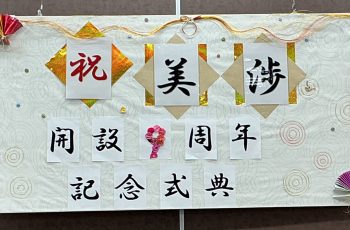 祝美渉
開設9周年
記念式典